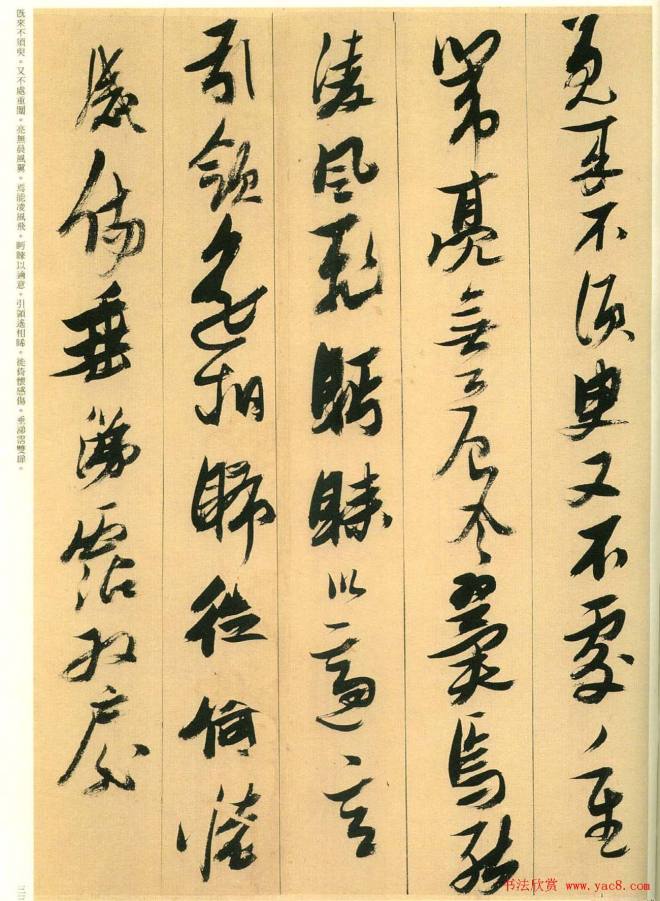 既来不須臾又不處重
闈亮無晨风翼焉能
凌风飛眄睞以適意
引領遥相睎徙倚懷
感傷垂涕霑双扉
既來不須臾。又不處重闈。亮無晨風翼。焉能凌風飛。眄睞以適意。引領遙相睎。徙倚懷感傷。垂涕霑雙扉。
书法欣赏 www.yac8.com